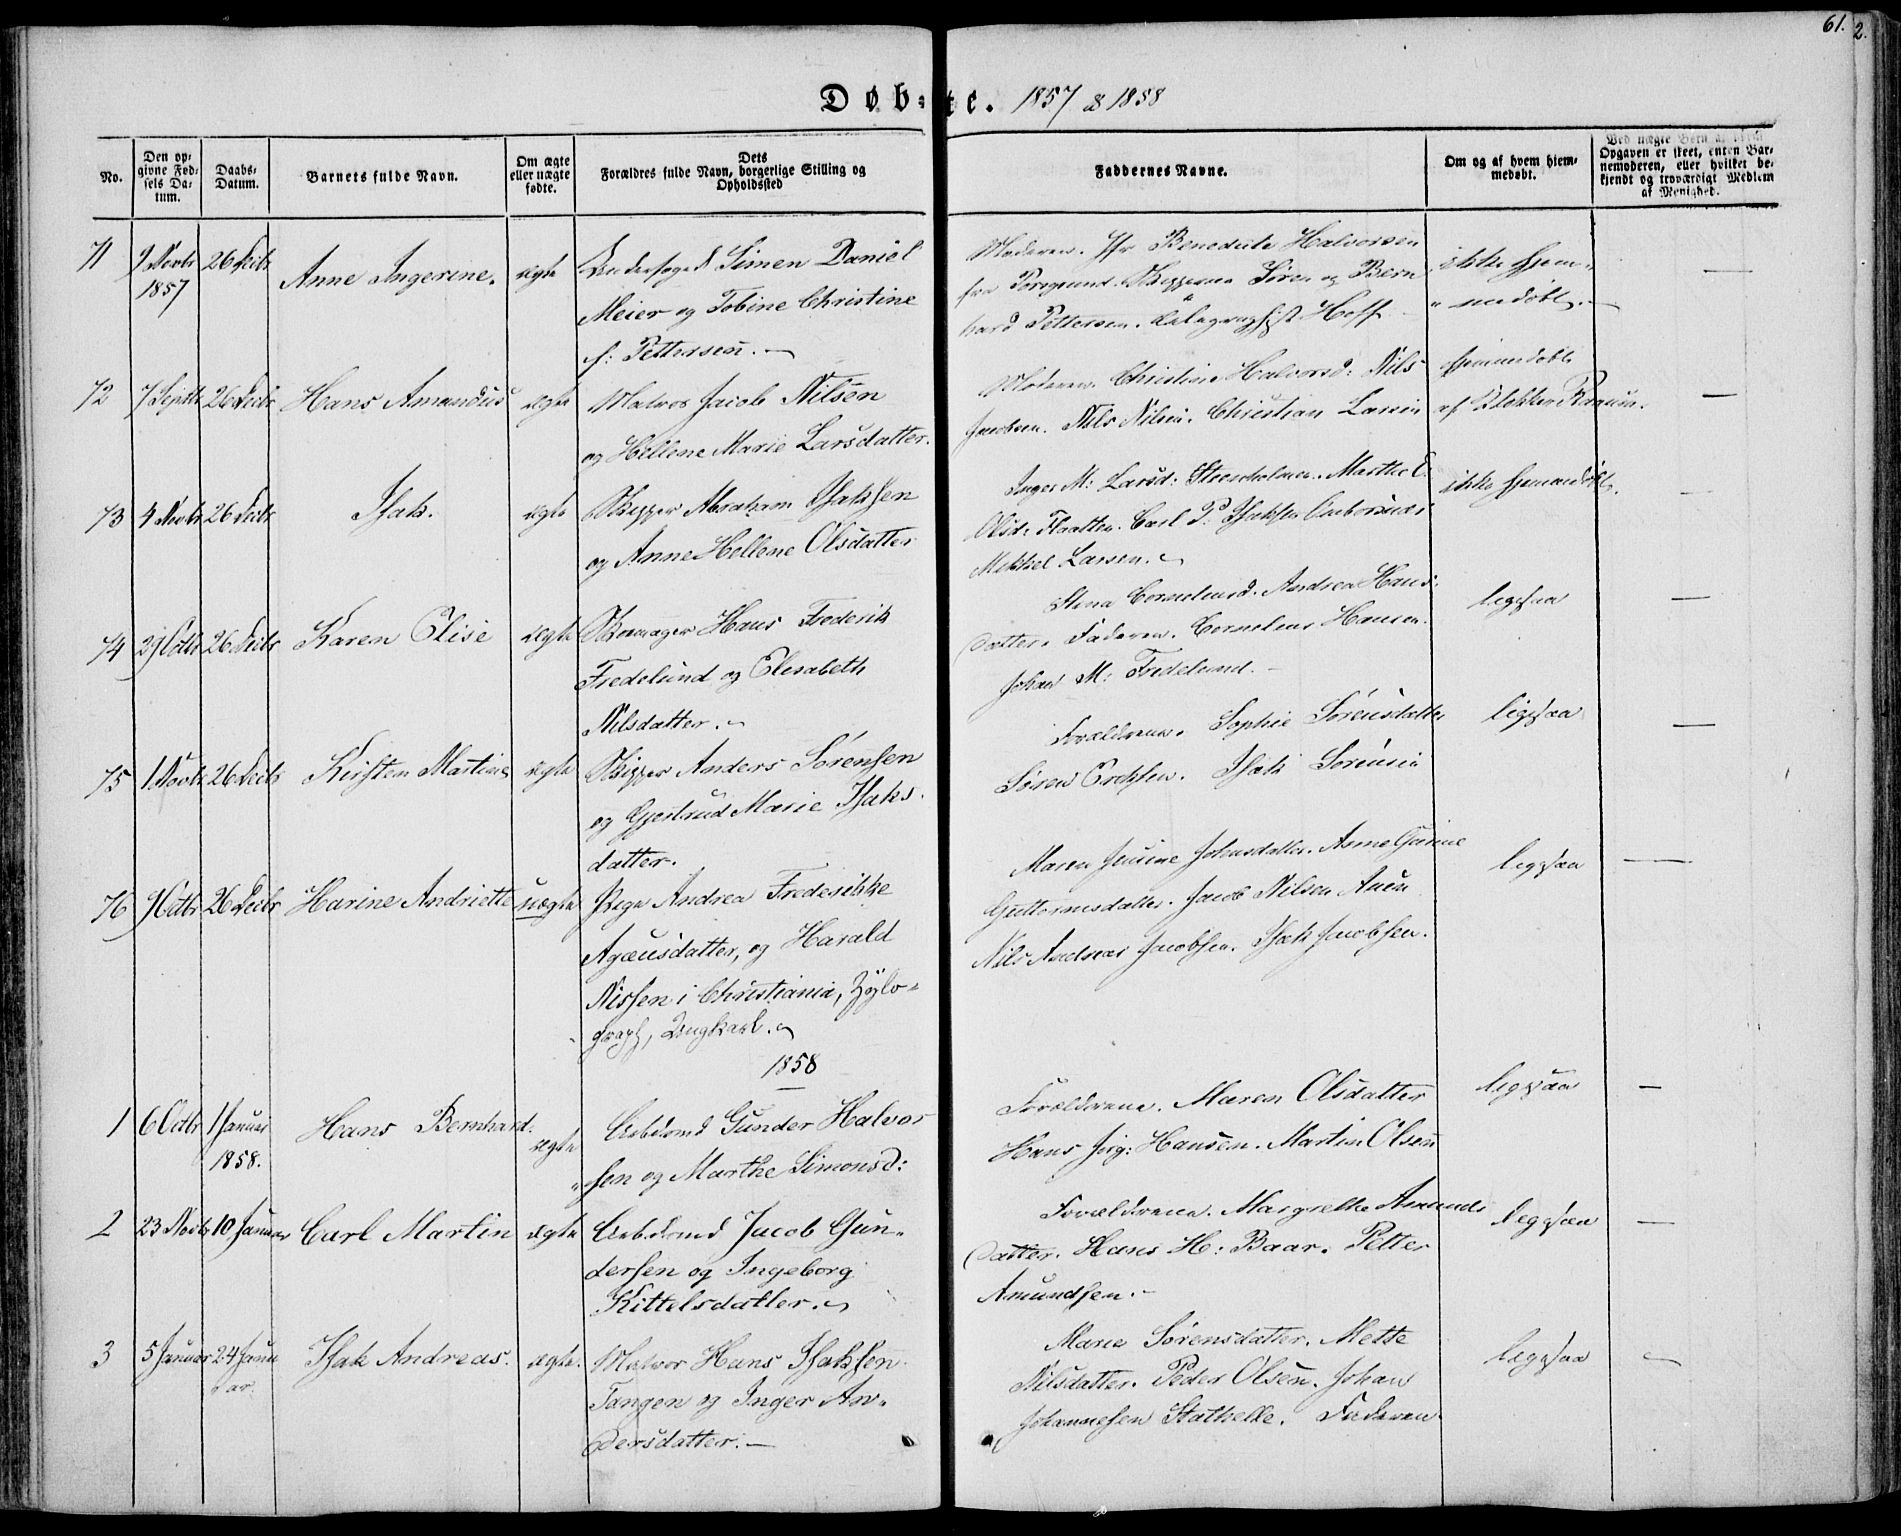 61. 2.
Døb-te. 1857 & 1858
No.
Den opgivne Fødsels Datum.
Daabs-Datum.
Barnets fulde Navn.
Om ægte eller uægte fødte.
Dets Forældres fulde Navn, borgerlige Stilling og Opholdssted
Faddernes Navne.
Om og af hvem hjemmedøbt.
Opgaven er skeet, enten Barnemoderen, eller hvilket bekjendt og troværdigt Medlem af Menighed.
71 9 Novbr 1857 26 Decbr Anne Ingerine. ægte
Simen Daniel
Meier og Tobine Christine
f: Pettersen.
Moderen. Jfr Benedicte Halvorsen
fra Porsgrund. Skipperne Søren og Bern
hard Pettersen. Hoff
ikke hjem
"medøbt.
72 7 Septbr 26 Decbr Hans Amandus ægte
Matros Jacob Nilsen
og Hellene Marie Larsdatter.
Moderen. Christine Halvorsd: Nils
Jacobsen. Nils Nilsen. Christian Larsen
hjemmedøbt
af Klokker
73 4 Novbr 26 Decbr Isak. ægte
Skipper Abraham Isaksen
og Anne Hellene Olsdatter
Inger M: Larsd: Streenholmen. Marthe E.
Olsd: Flaatten. Carl P. Isaksen
Mikkel Larsen.
ikke hjemmedøbt.
74 29 Octbr 26 Decbr Karen Elise ægte
Skomager Hans Frederik
Fredelund og Elisabeth
Nilsdatter.
Stina Corneliusd. Andrea Hans:
datter. Faderen. Cornelius Hansen.
Johan M: Fredelund.
ligesaa
75 1 Novbr 26 Decbr Kirsten Martine ægte
Skipper Anders Sörensen
og Gjertrud Marie Isaks.
datter.
Forældrene. Sophie Sörensdatter
Sören Ericksen. Isak Sörensen
ligesaa
76 9 Octbr 26 Decbr Harine Andriette uægte
Pige Andrea Frederikke
Agæusdatter, og Harald
Nissen i Christiania, Zylo-
graph, Ungkarl.
Maren Jensine Johnsdatter. Anne Gurine
Guttormsdatter. Jacob Nilsen Auen
Nils Andreas Jacobsen. Isak Jacobsen.
ligesaa
1858
1 6 Octbr 1 Januar 1858. Hans Bernhard. ægte
Arbdsmd Gunder Halvor
"sen og Marthe Simonsd:
Forældrene. Maren Olsdatter
Hans Jörg: Hansen. Martin Olsen
ligesaa
2 23 Novbr 10 Januar Carl Martin ægte
Arbdsmd Jacob Gun-
dersen og Ingeborg
Kittelsdatter.
Forældrene. Margrethe Amunds
datter. Hans H: Baar. Petter
Amundsen.
ligesaa
3 5 Januar 24 Januar Isak Andreas. ægte.
Matros Hans Isaksen
Tangen og Inger An-
dersdatter.
Maria Sörensdatter. Mette
Nilsdatter. Peder Olsen. Johan
Johannesen Stathelle. Faderen
ligesaa